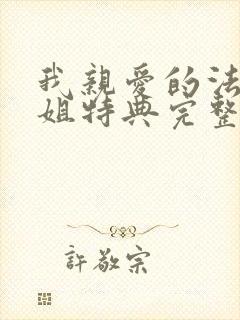 我親愛的法
姐特典完整
許敬宗